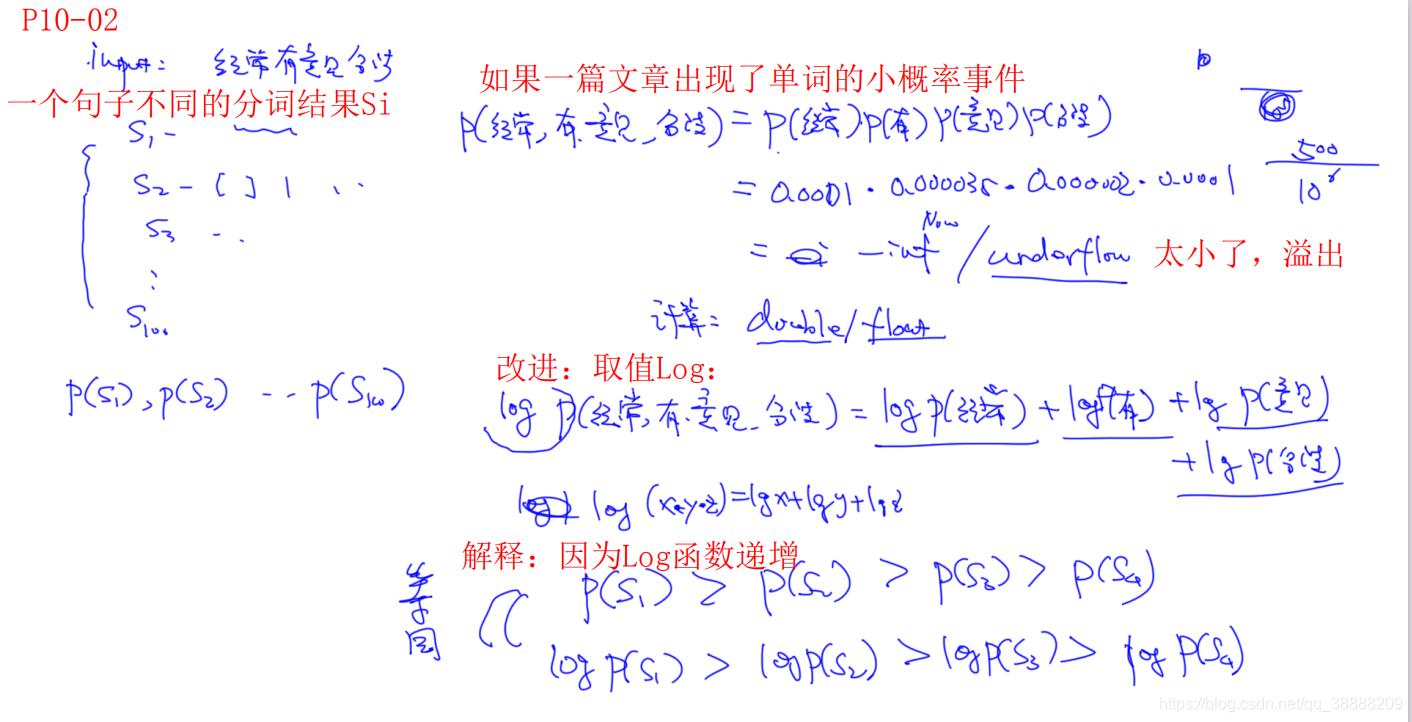 P10-02
input: 经常有意见分歧
一个句子不同的分词结果Si
S₁ -
S₂ - [ ] | ..
S₃ ..
⋮
S₁₀₀
p(S₁), p(S₂) -- p(S₁₀₀)
如果一篇文章出现了单词的小概率事件
p(经常, 有, 意见, 分歧) = p(经常) p(有) p(意见) p(分歧)
= 0.0001 · 0.000035 · 0.000002 · 0.0001
500
= -inf / underflow 太小了，溢出
计算: double/float
改进：取值Log：
log p(经常, 有, 意见, 分歧) = log p(经常) + log p(有) + log p(意见)
+ log p(分歧)
log (x·y·z) = lgx + lgy + lgz
解释：因为Log函数递增
等同
p(S₁) ≥ p(S₂) > p(S₃) > p(S₄)
log p(S₁) > log p(S₂) > log p(S₃) > log p(S₄)
https://blog.csdn.net/qq_38888209